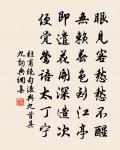 眼見客愁愁不醒
無賴春色到江亭
即遣花開深造次
便覺鶯語太丁寧
杜甫絕句漫興九首其
九詞典網集